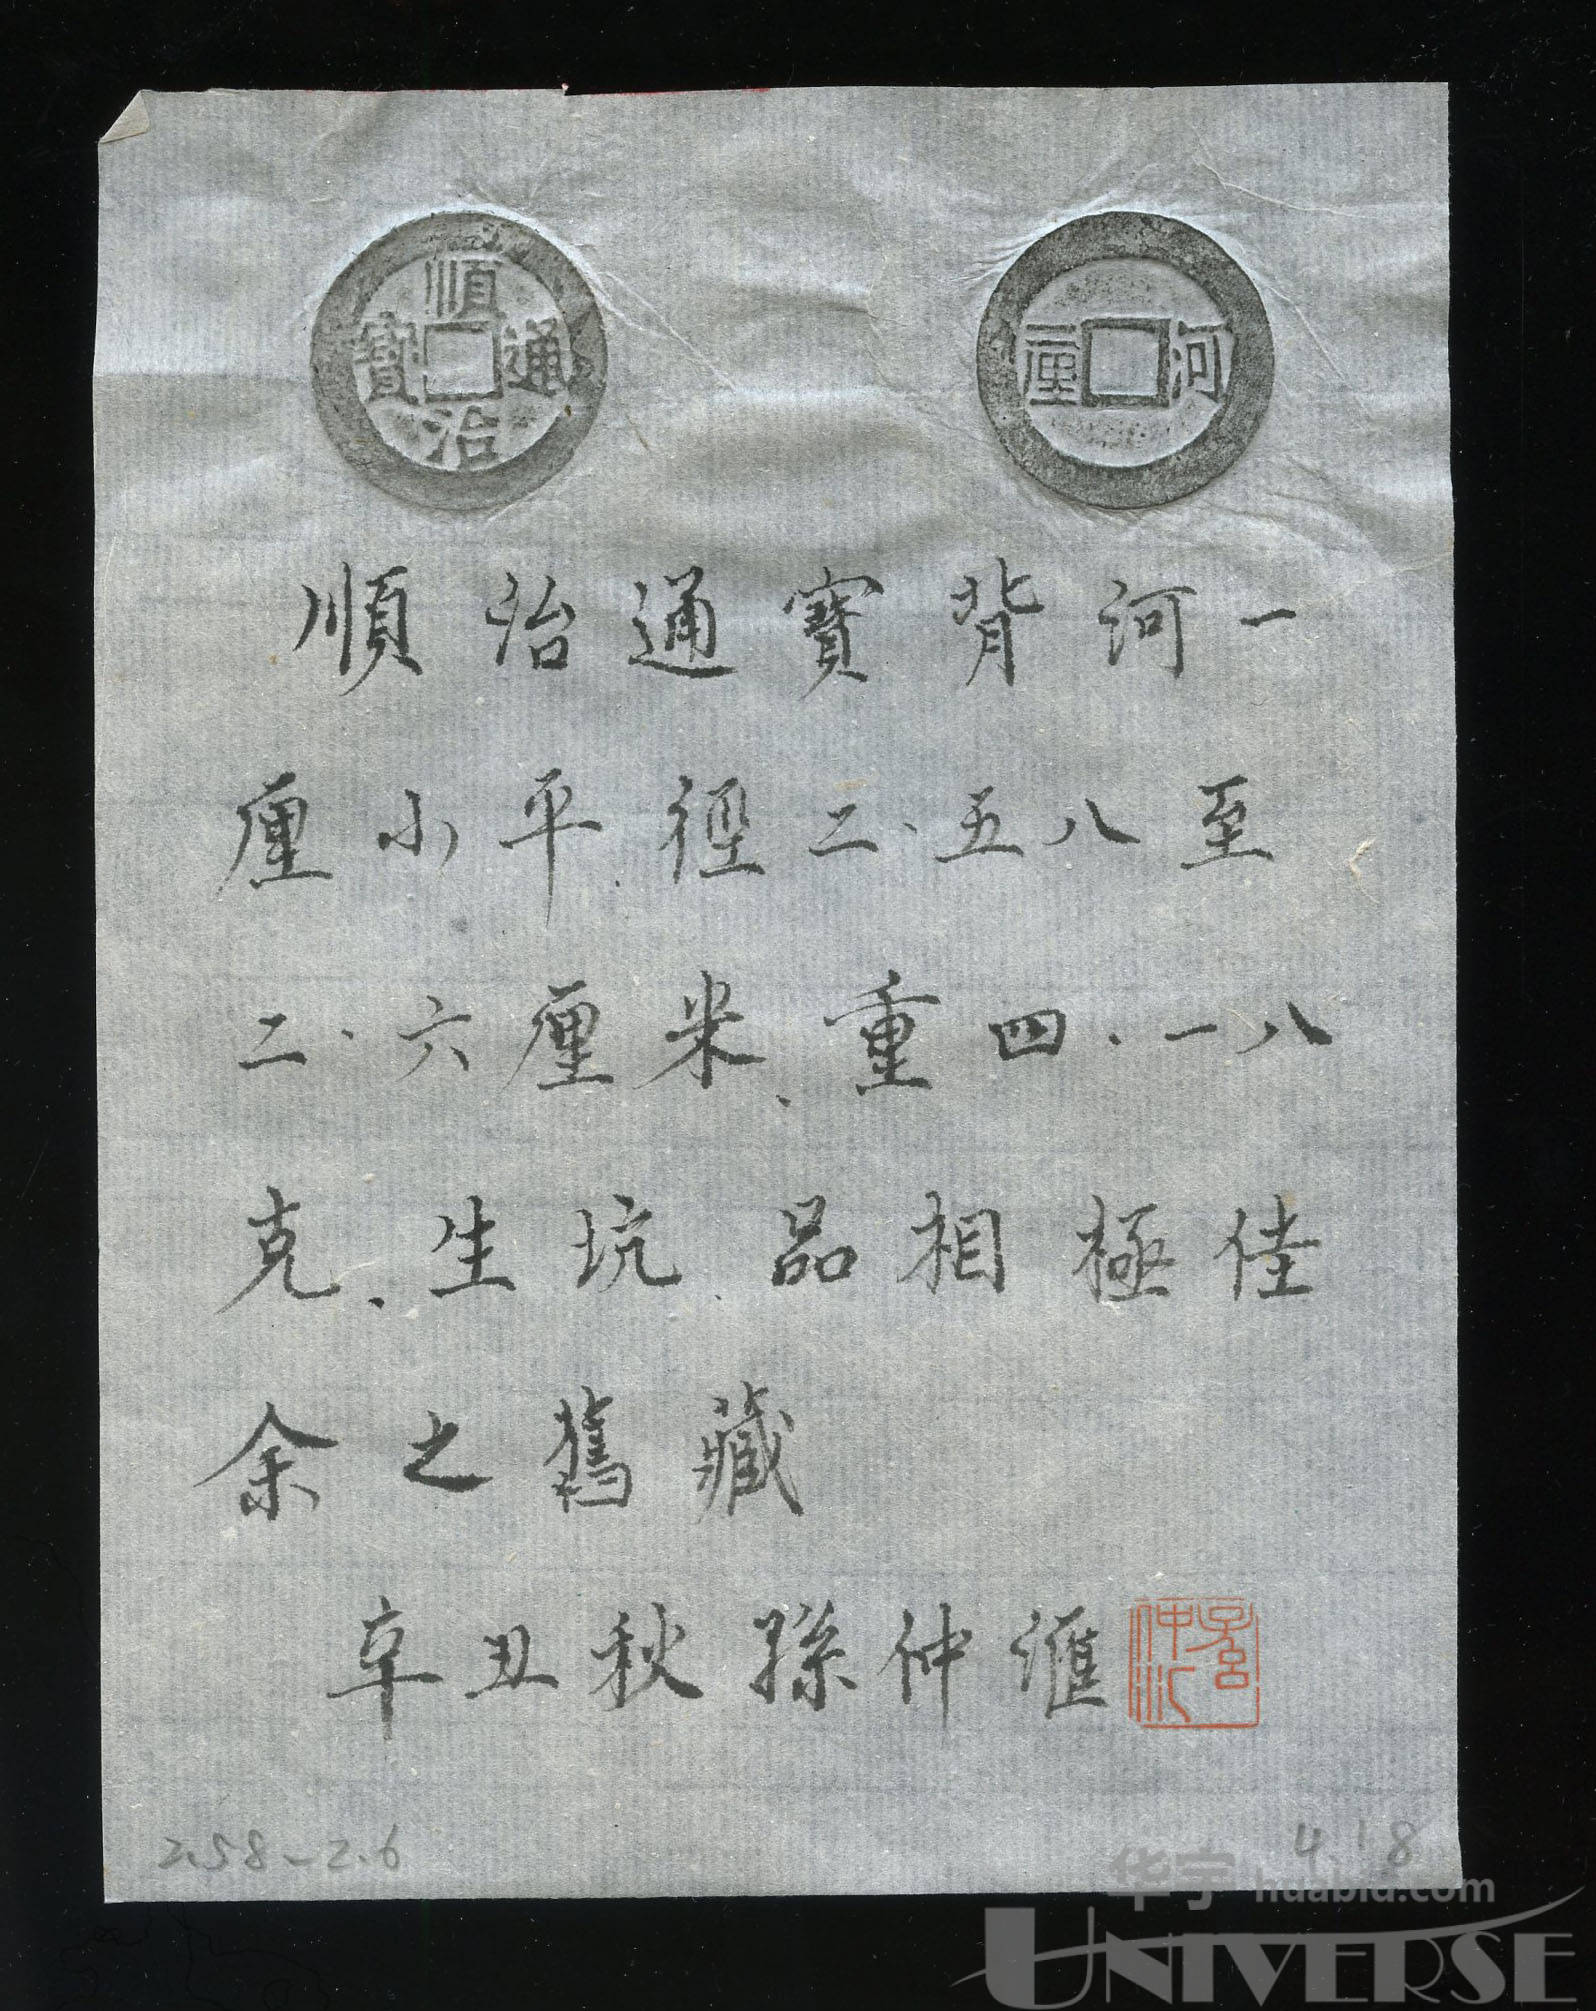 順治通寶
一厘 河
順治通寶背河一
厘小平、徑二.五八至
二.六厘米、重四.一八
克、生坑、品相極佳
余之舊藏
辛丑秋孫仲滙
孫仲汇
2.58-2.6
4.18
华宇 huabid.com
UNIVERSE